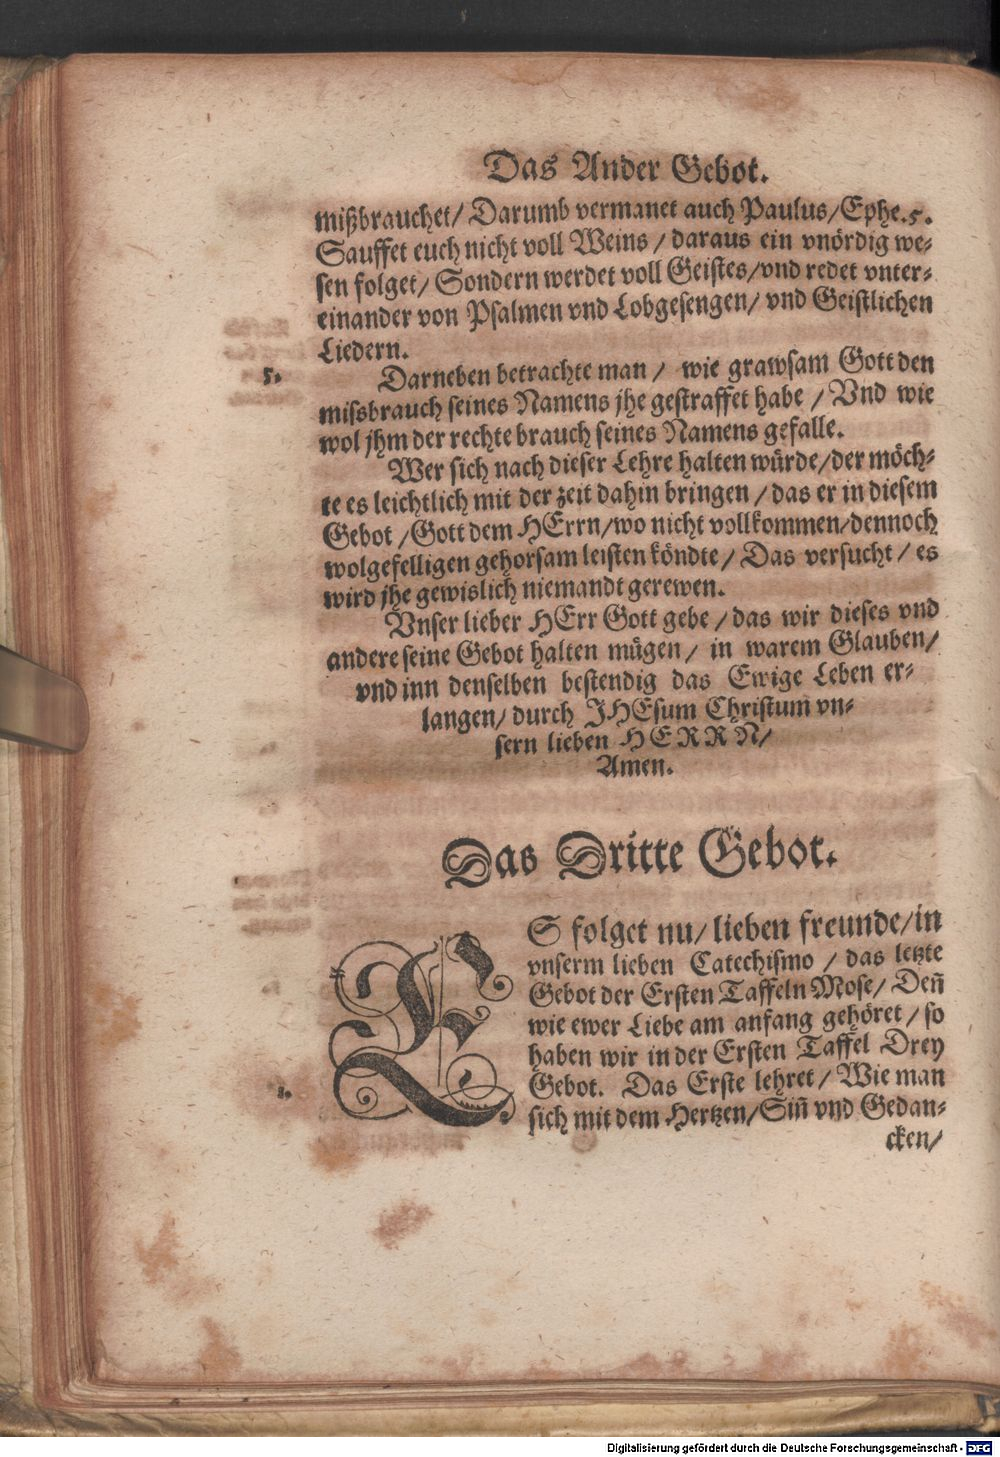 Das Ander Gebot.
mißbrauchet/ Darumb vermanet auch Paulus/Ephe.5.
Sauffet euch nicht voll Weins / daraus ein vnördig we-
sen folget/ Sondern werdet voll Geistes/vnd redet vnter-
einander von Psalmen vnd Lobgesengen/ vnd Geistlichen
Liedern.
5.
Darneben betrachte man / wie grawsam Gott den
missbrauch seines Namens jhe gestraffet habe / Vnd wie
wol jhm der rechte brauch seines Namens gefalle.
Wer sich nach dieser Lehre halten würde/der möch-
te es leichtlich mit der zeit dahin bringen / das er in diesem
Gebot /Gott dem HErrn/wo nicht vollkommen/dennoch
wolgefelligen gehorsam leisten köndte/ Das versucht / es
wird jhe gewislich niemandt gerewen.
Vnser lieber HErr Gott gebe / das wir dieses vnd
andere seine Gebot halten mügen / in warem Glauben/
vnd inn denselben bestendig das Ewige Leben er-
langen/ durch JHEsum Christum vn-
sern lieben HERRN/
Amen.
Das Dritte Gebot.
ES folget nu/ lieben freunde/in
vnserm lieben Catechismo / das letzte
Gebot der Ersten Taffeln Mose/ Deñ
wie ewer Liebe am anfang gehöret / so
haben wir in der Ersten Taffel Drey
1.
Gebot. Das Erste lehret / Wie man
sich mit dem Hertzen/Siñ vnd Gedan-
cken/
Digitalisierung gefördert durch die Deutsche Forschungsgemeinschaft - DFG